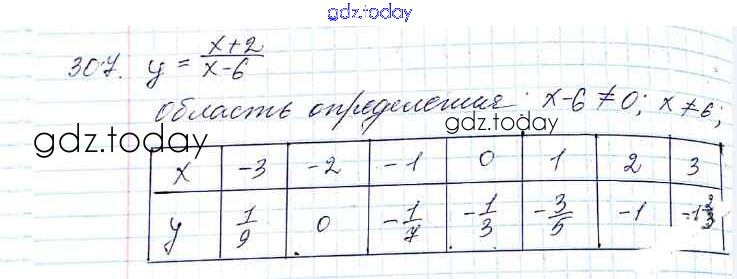 gdz.today
307. y = (x+2)/(x-6)
область определения: x-6 ≠ 0; x ≠ 6;
gdz.today
gdz.today
x | -3 | -2 | -1 | 0 | 1 | 2 | 3
y | 1/9 | 0 | -1/7 | -1/3 | -3/5 | -1 | -1 2/3